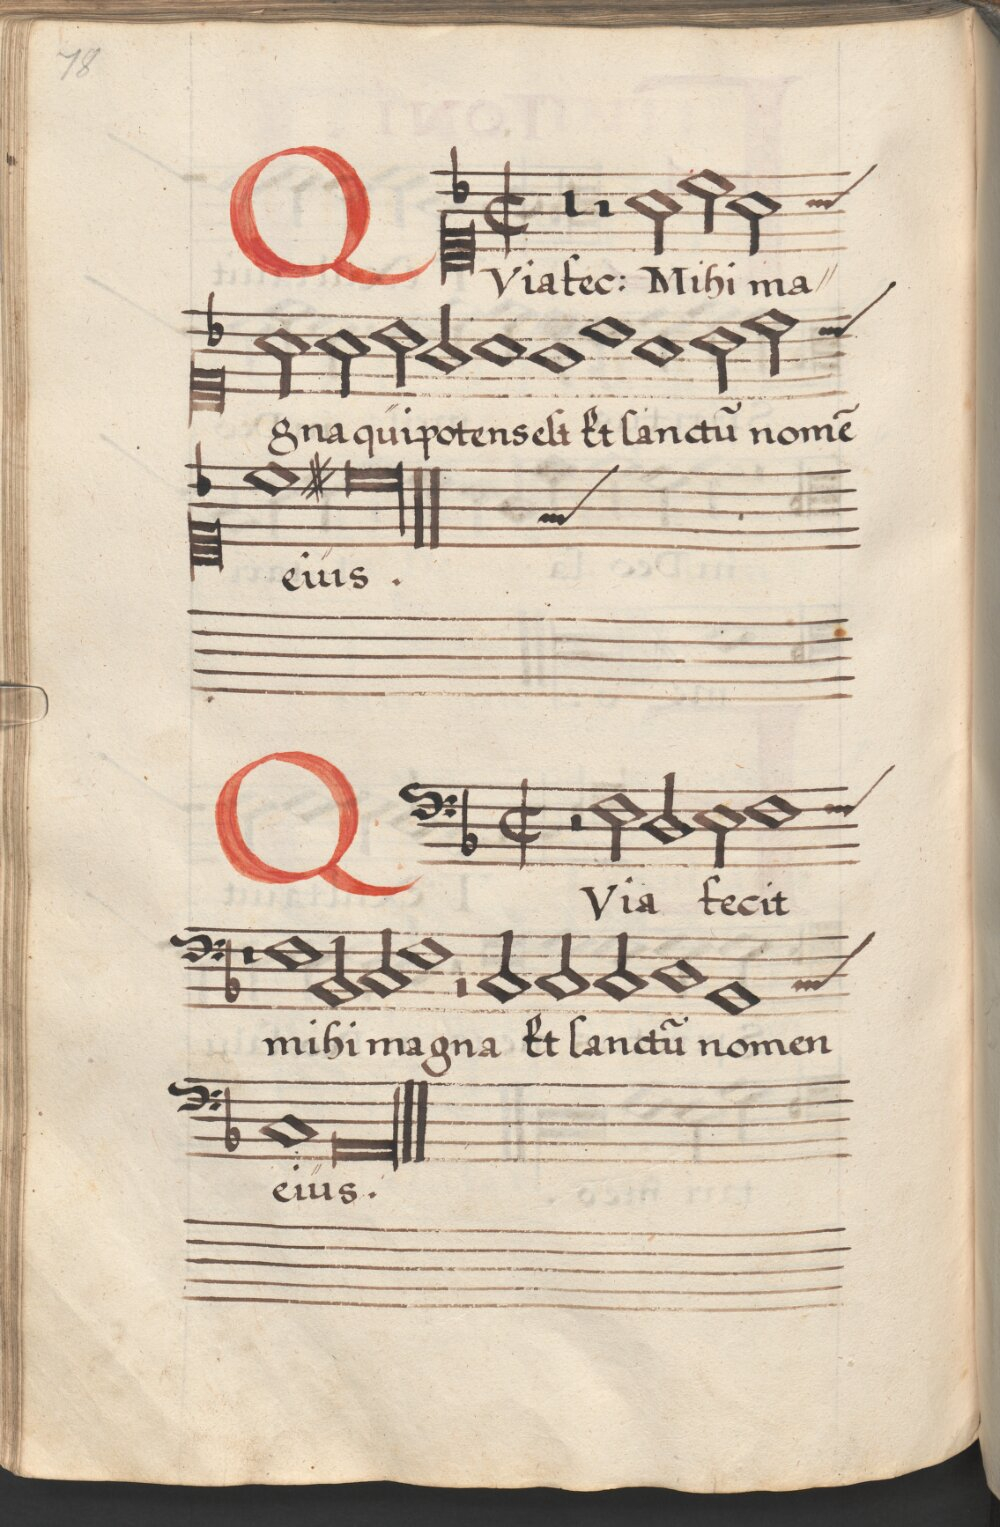 78
QViafec: Mihi ma//
gna qui potens est Et sanctũ nomẽ
eius .
QVia fecit
mihi magna Et sanctũ nomen
eius .